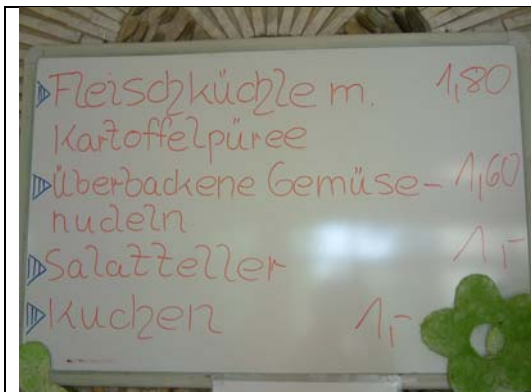 Fleischküchle m. 1,80
Kartoffelpüree
Überbackene Gemüse- 1,60
nudeln
Salatteller 1,-
Kuchen 1,-